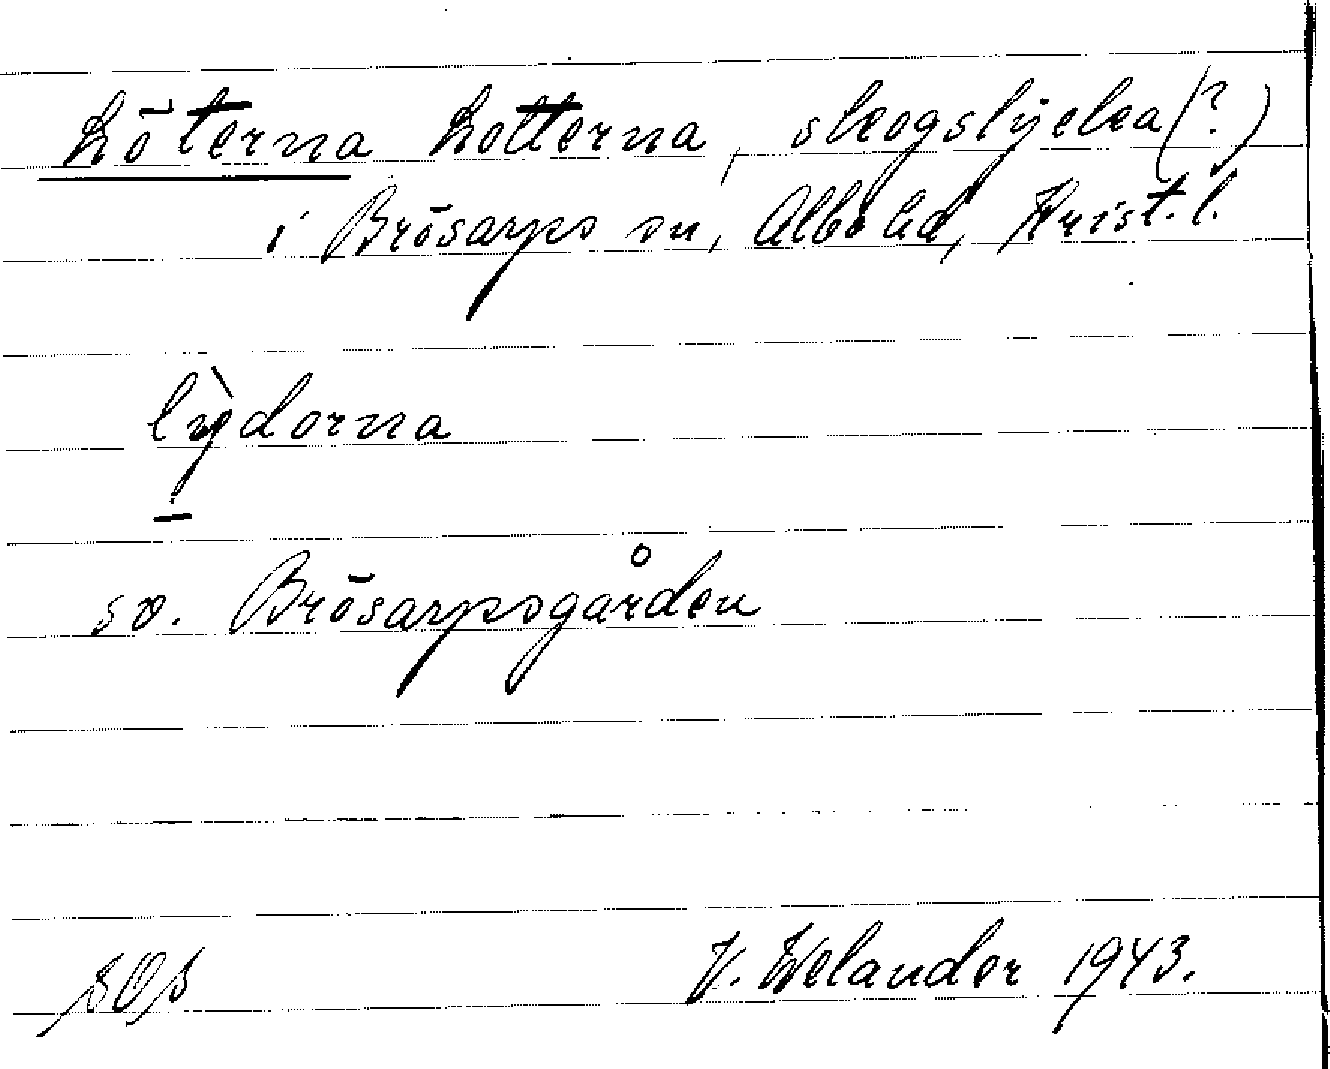 Löterna Lotterna, skogslycka (?)
i Brösarps sn, Albo hd, Krist. l.
lỳdorna
so. Brösarpsgården
SOS V. Welander 1943.